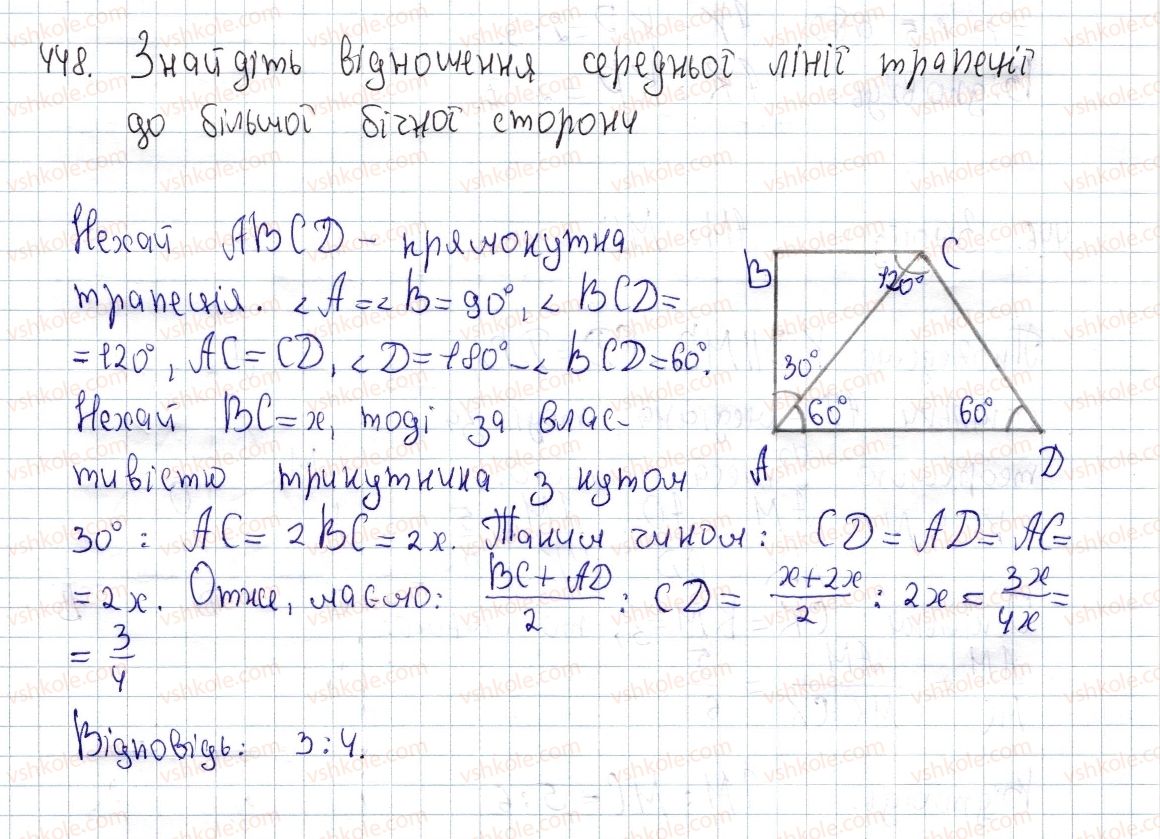 448. Знайдіть відношення середньої лінії трапеції
до більшої бічної сторони
Нехай ABCD - прямокутна
трапеція. ∠A=∠B=90°, ∠BCD=
=120°, AC=CD, ∠D=180°-∠BCD=60°.
Нехай BC=x, тоді за влас-
тивістю трикутника з кутом
30°: AC=2BC=2x. Таким чином: CD=AD=AC=
=2x. Отже, маємо: (BC+AD)/2 : CD = (x+2x)/2 : 2x = 3x/4x =
= 3/4
Відповідь: 3:4.
B
C
120°
30°
60°
60°
A
D
vshkole.com